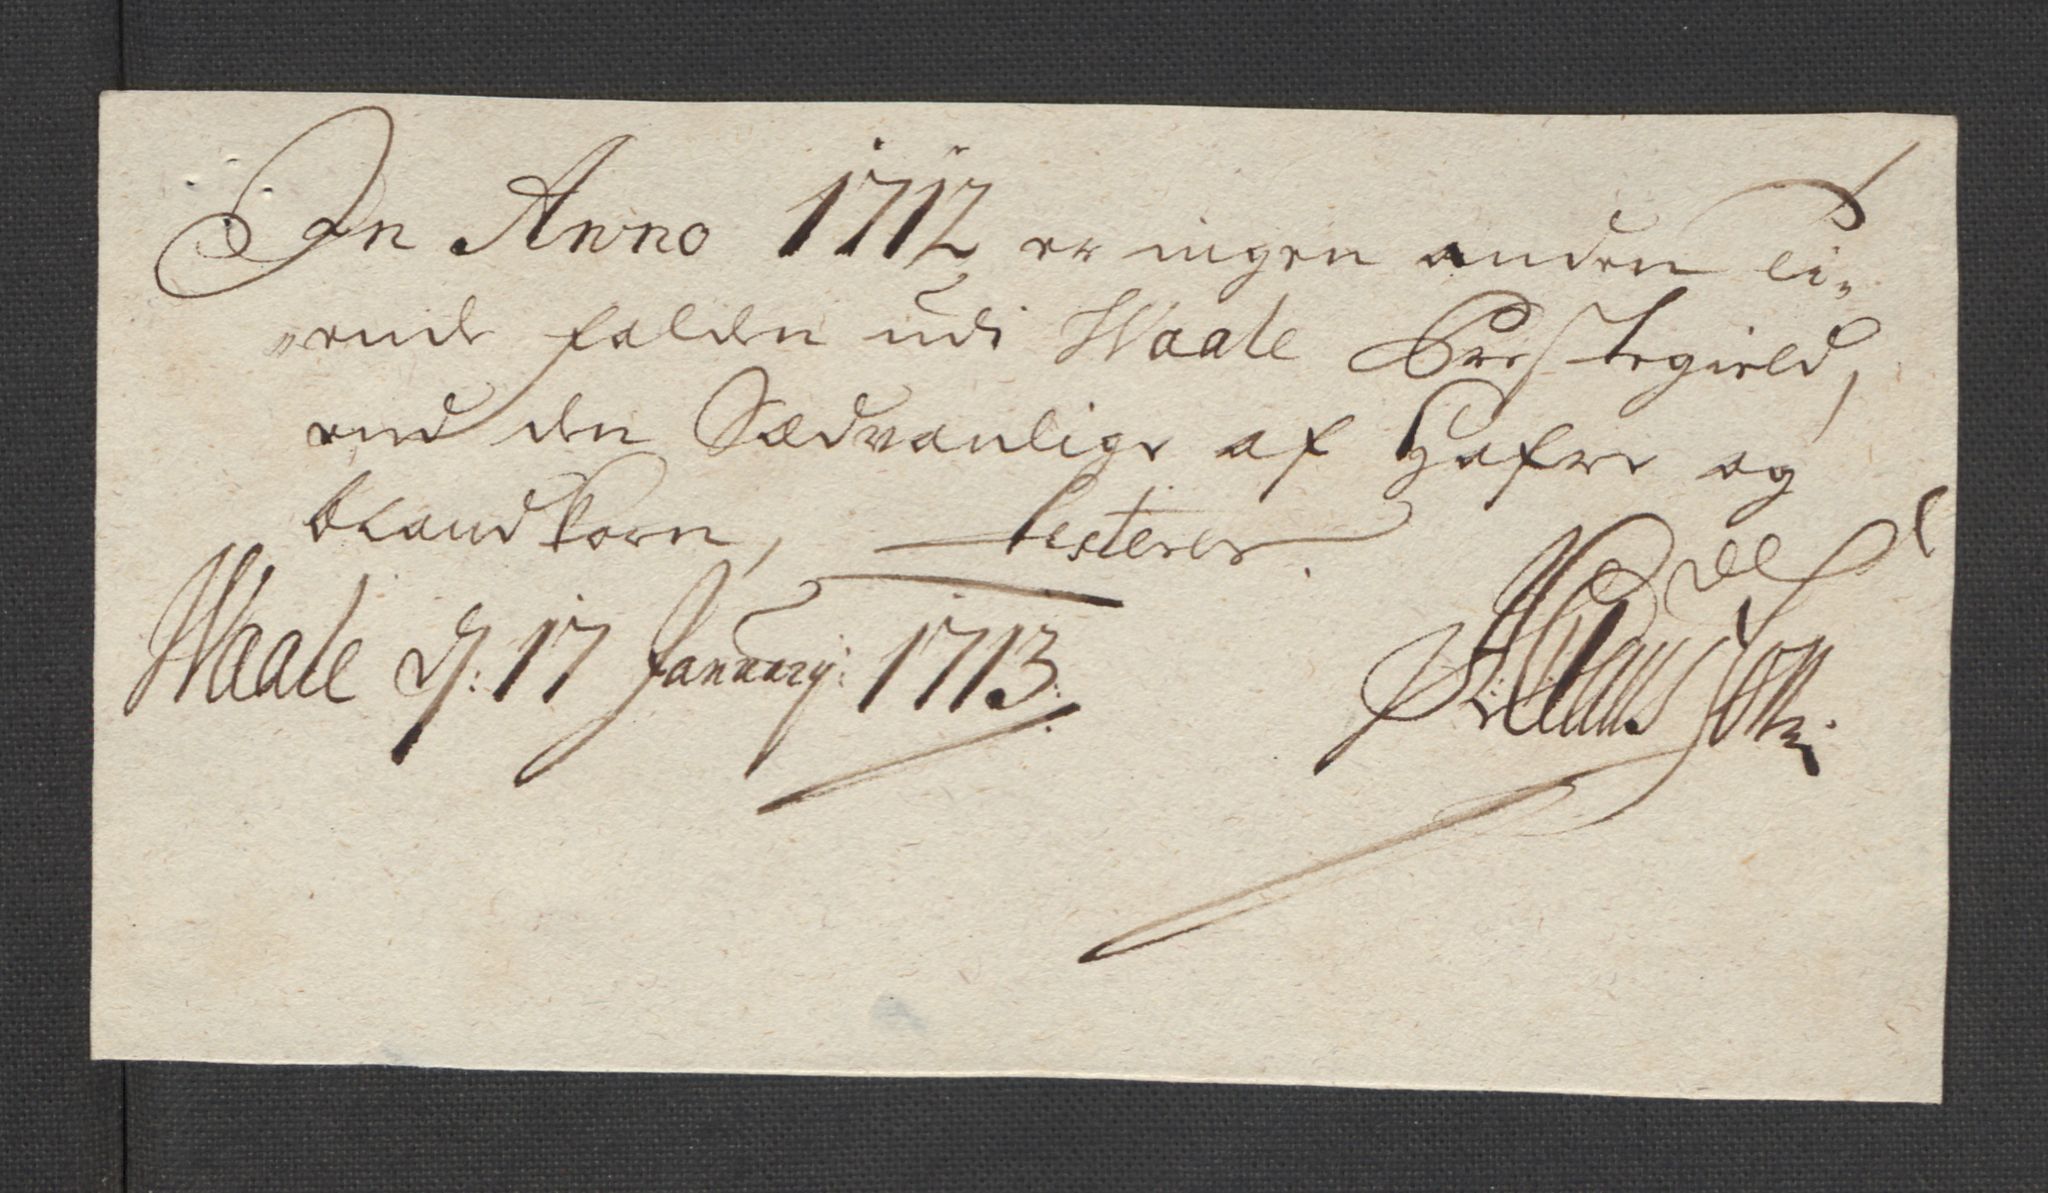 In Anno 1712 er ingen anden Ti-
ende falden udi Waale Prestegield,
end den Sædvanlige af Hafre og
blandkorn, Testerer
Waale d: 17 January: 1713.